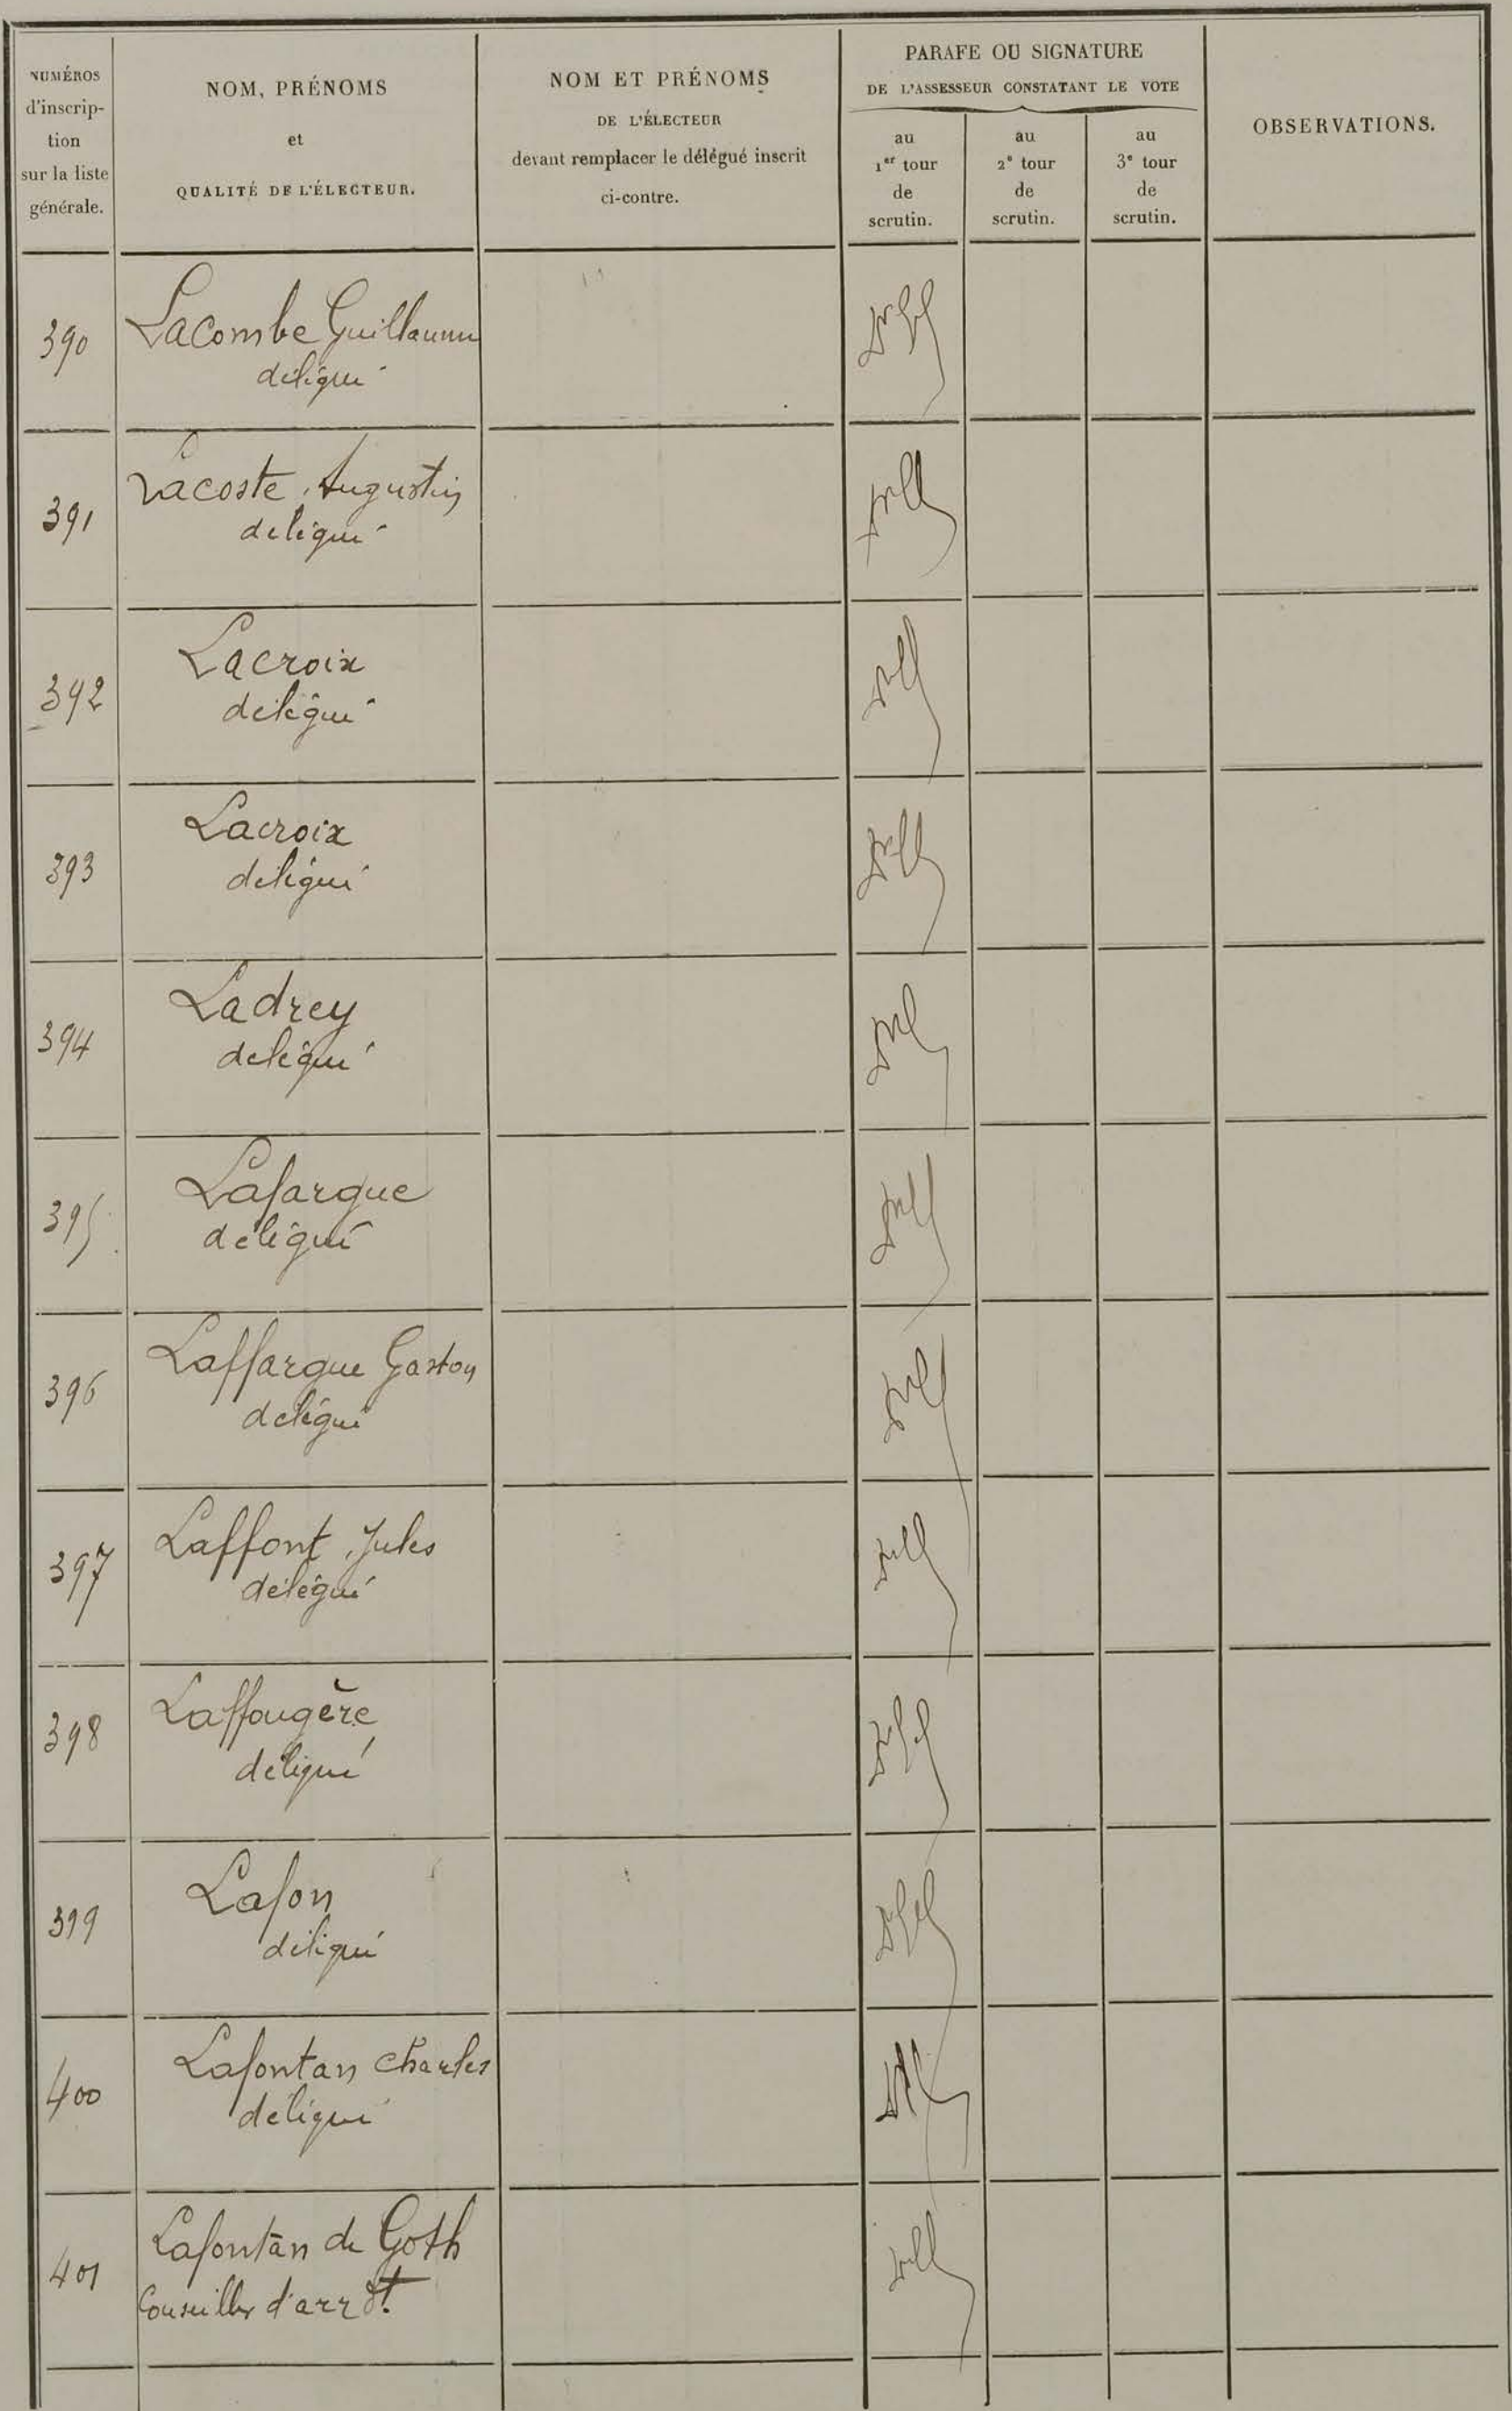 NUMÉROS
d'inscrip-
tion
sur la liste
générale.
NOM, PRÉNOMS
et
QUALITÉ DE L'ÉLECTEUR.
NOM ET PRÉNOMS
DE L'ÉLECTEUR
devant remplacer le délégué inscrit
ci-contre.
PARAFE OU SIGNATURE
DE L'ASSESSEUR CONSTATANT LE VOTE
au
1er tour
de
scrutin.
au
2e tour
de
scrutin.
au
3e tour
de
scrutin.
OBSERVATIONS.
390 Lacombe Guillaume
délégué
391 Lacoste Augustin
délégué
392 Lacroix
délégué
393 Lacroix
délégué
394 Ladrey
délégué
395 Lafargue
délégué
396 Laffargue Gaston
délégué
397 Laffont Jules
délégué
398 Laffougère
délégué
399 Lafon
délégué
400 Lafontan Charles
délégué
401 Lafontan de Goth
Conseiller d'arrdt.